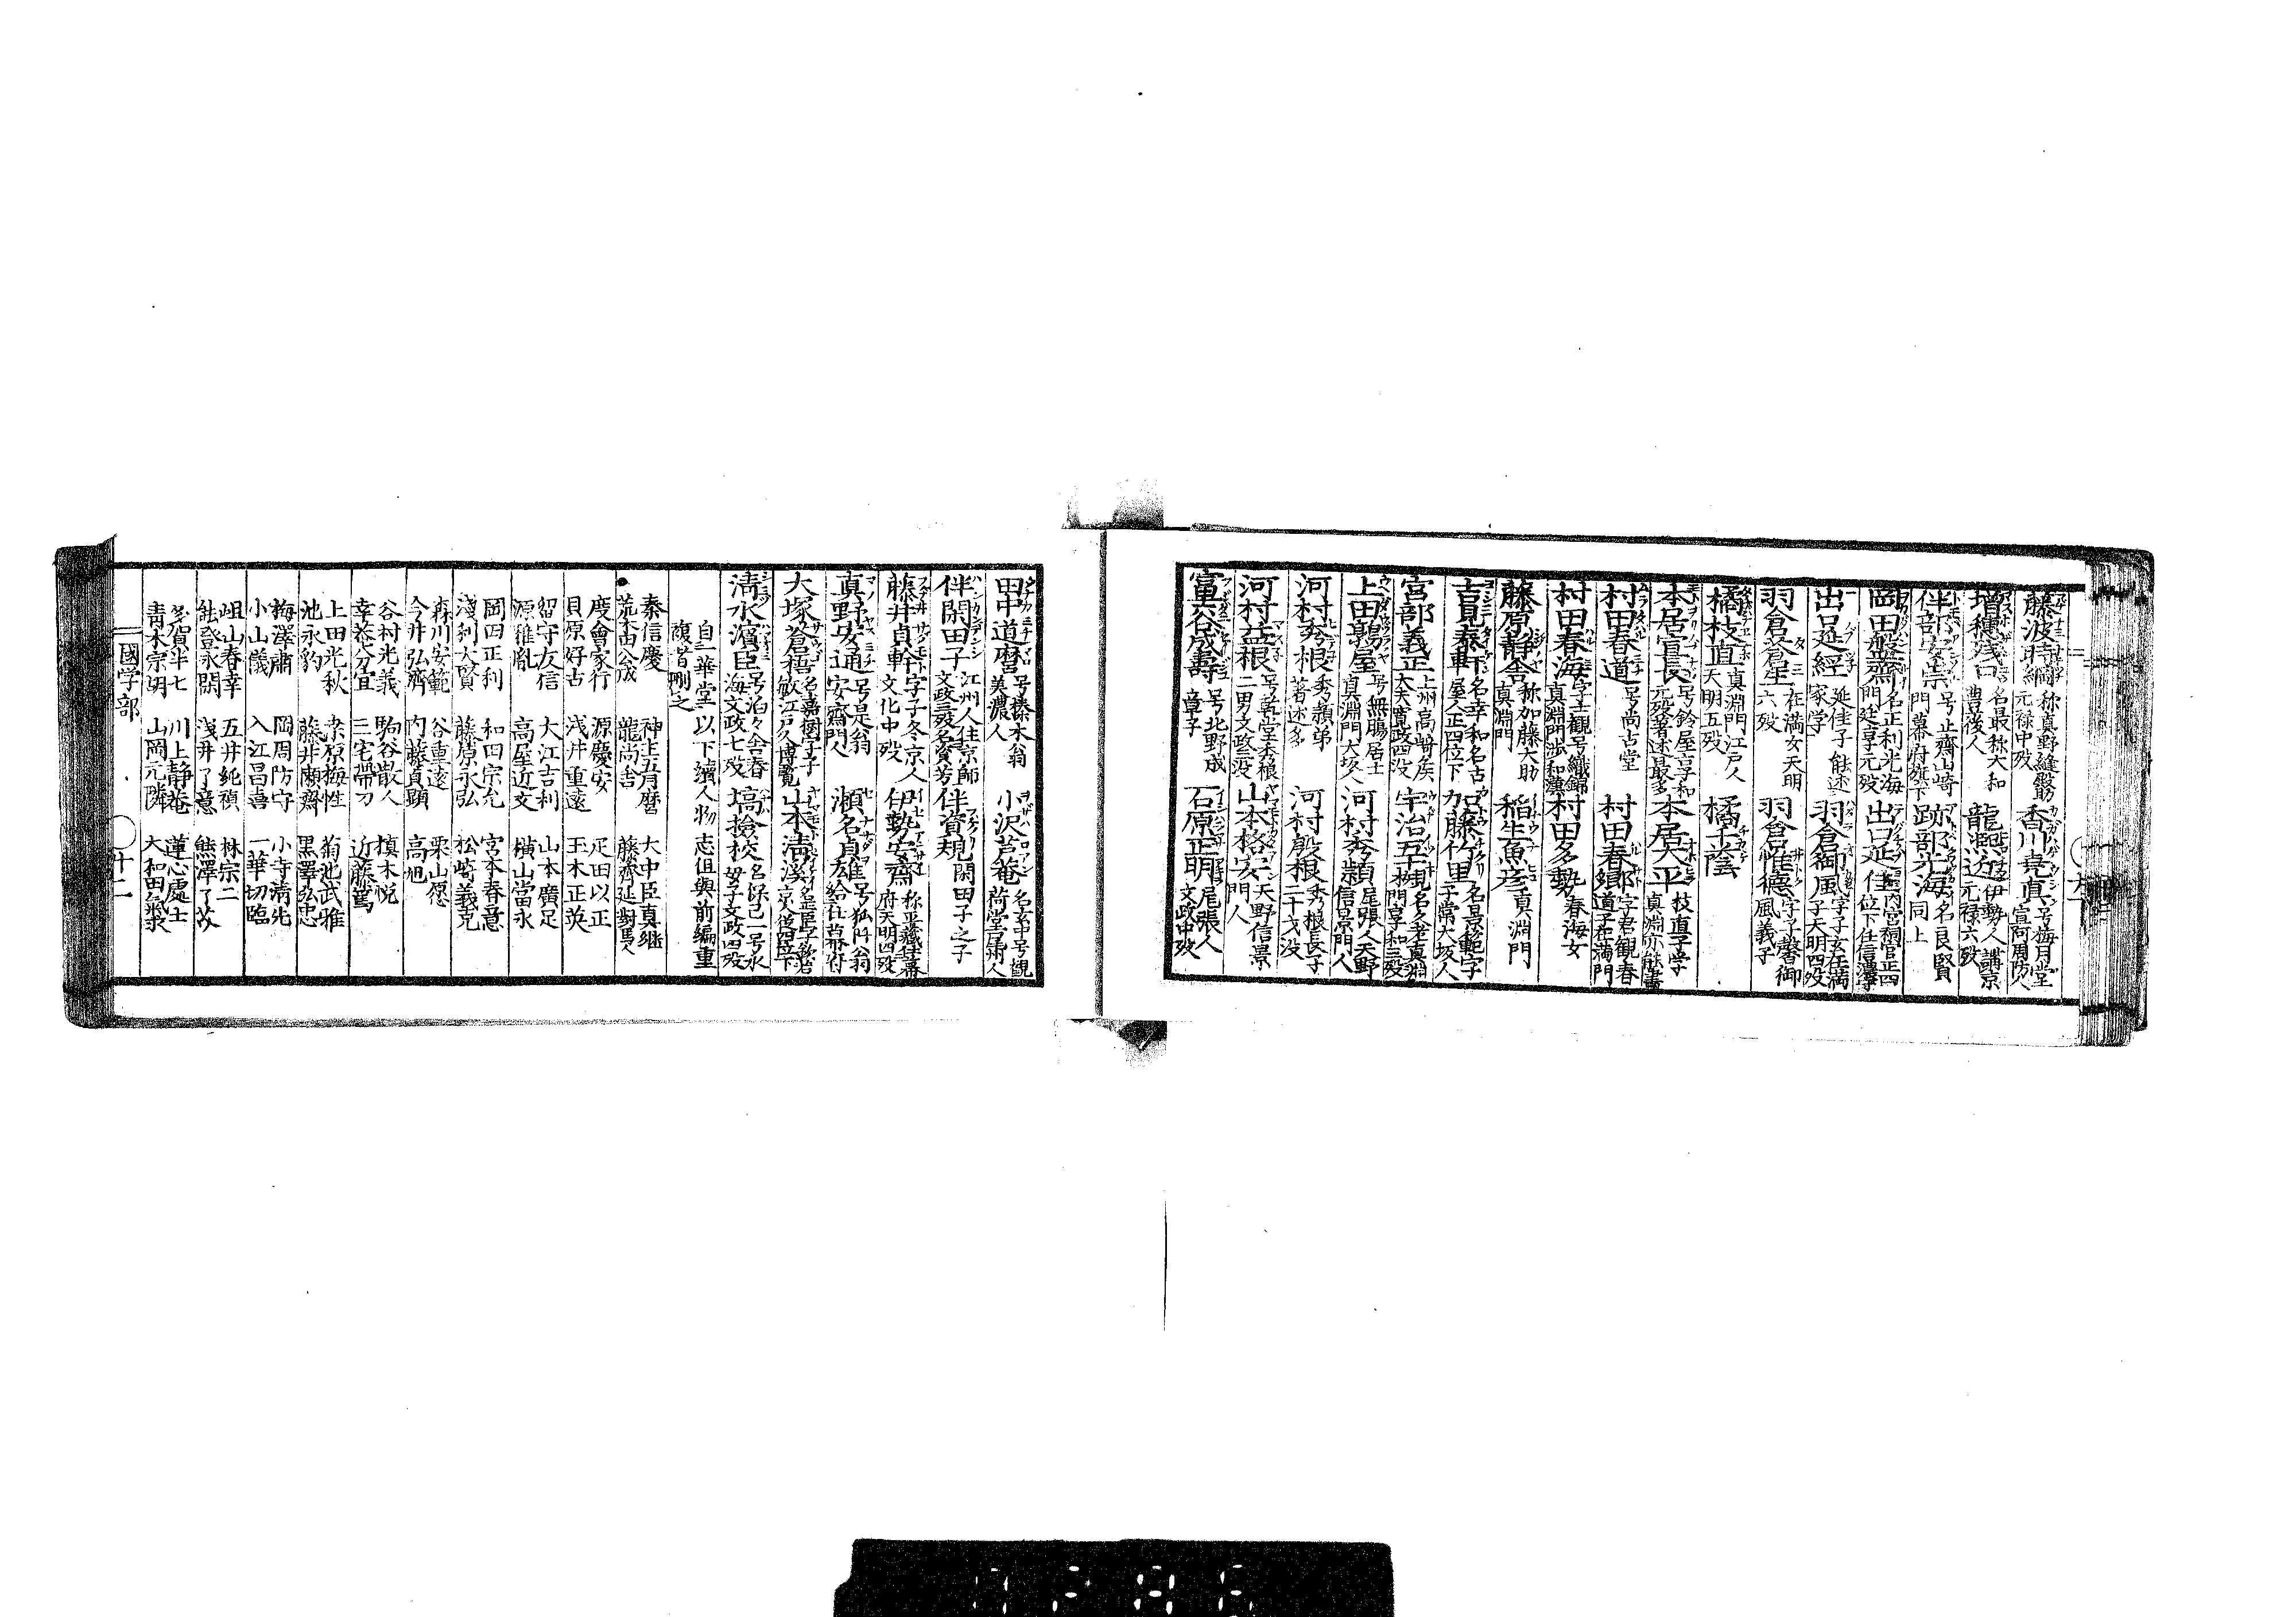 藤波時綱 称真野縫殿 元禄中歿
香川景真 号梅月堂 宣阿周防人
増穂残口 名最称大和 豊後人
龍熙近 伊勢人講京 元禄六歿
伴部安崇 号止齋山崎 門幕府旗下
跡部光海 名良賢 同上
岡田盤齋 名正利光海 門延享元歿
出口延佳 内宮祠官正四位下
出口延経 延佳子能述 家学
羽倉御風 字子玄在満 子天明四歿
羽倉蒼生 在満女天明 六歿
羽倉惟德 字子馨御 風義子
橘枝直 真淵門江戸人 天明五歿
橘千蔭 枝直子学 真淵亦能書
本居宣長 号鈴屋享和 元歿著述最多
本居大平
村田春道 号尚古堂
村田春郷 字君観春 道子在満門
村田春海 字士観号織錦 真淵門渉和漢
村田多勢 春海女
藤原静舎 称加藤大助 真淵門
稲生魚彦 真淵門
吉見泰軒 名幸和名古 屋人正四位下
加藤竹里 名景範字 子常大坂人
宮部義正 上州高崎矦 大夫寛政四没
宇治五十槻 名久老真淵 門享和三歿
上田鶉屋 号無腸居士 真淵門大坂人
河村秀穎 尾張人天野 信景門人
河村秀根 秀穎弟 著述多
河村殷根 秀根長子 二十戈没
河村益根 号乾堂秀根 二男文政二没
山本格安 天野信景 門人
富谷成壽 号北野成 章子
石原正明 尾張人 文政中歿
田中道麿 号榛木翁 美濃人
小沢芦菴 名玄中号観 荷堂尾州人
伴閑田子 江州人住京師 文政三歿名資芳
伴資規 閑田子之子
藤井貞幹 字子冬京人 文化中歿
伊勢安齋 称平蔵仕幕 府天明四歿
真野安通 号是翁 安齋門人
瀬名貞雄 号狐阡翁 給仕幕府
大塚蒼梧 名嘉樹字子 敏江戸人博覧
山本清溪 京人従四位下
清水濱臣 号泊々舎春 海文政七歿
塙撿挍 名保己一号水 母子文政四歿
自二華堂以下續人物志但與前編重
複者刪之
秦信慶 神主五月麿 大中臣真継
荒木田公成 龍尚舎 藤齋延 對馬人
度會家行 源慶安 疋田以正
貝原好古 浅井重遠 玉木正英
留守友信 大江吉利 山本廣足
源雅胤 高屋近文 横山當永
岡田正利 和田宗允 宮本春意
淺利大賢 藤原永弘 松崎義克
森川安範 谷重遠 栗山愿
今井弘濟 内藤貞顕 高旭
谷村光義 駒谷散人 槙木悦
幸菴分宜 三宅帶刀 近藤篤
上田光秋 桒原梅性 菊池武雅
池永豹 藤井廟齋 黒澤弘忠
梅澤肅 岡周防守 小寺清先
小山儀 入江昌喜 一華切臨
岨山春幸 五井純禎 林宗二
能登永閑 浅井了意 熊澤了芥
多賀半七 川上靜菴 蓮心處士
青木宗胡 山岡元隣 大和田氣求
國学部 十二